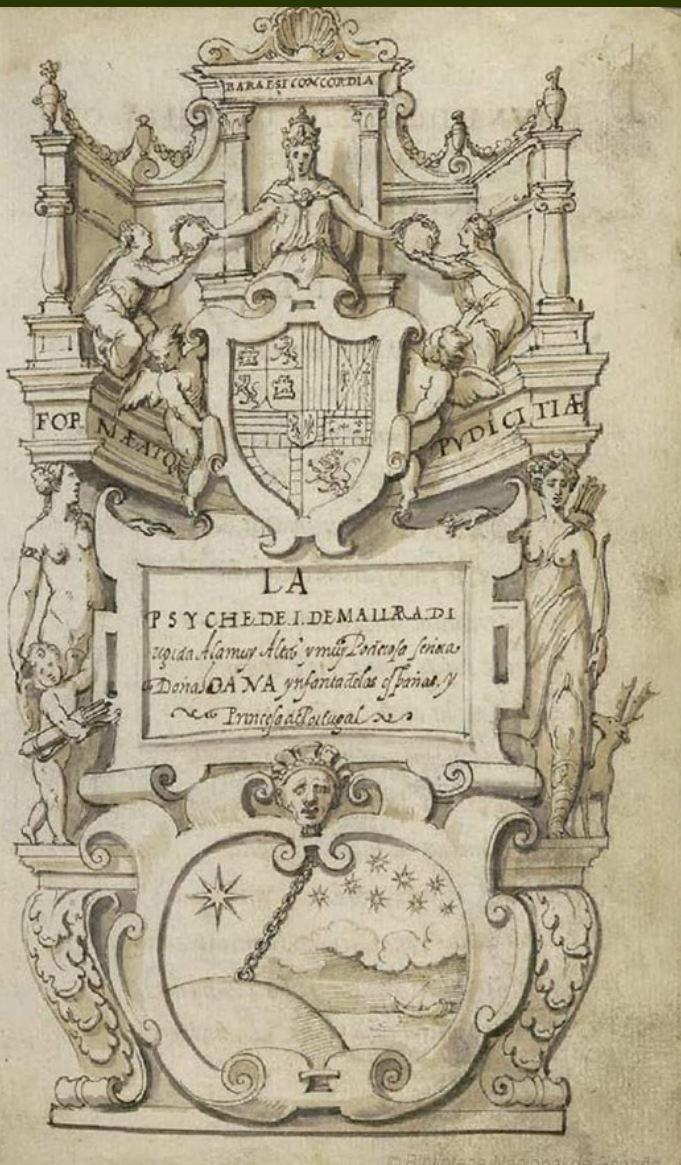 RARA EST CONCORDIA
FOR MÆ ATQ PVDICI TIÆ
LA
PSYCHE DE I. DE MALLARA. DI
rigida A la muy Alta y muy Poderosa señora
Doña IOANA ynfanta delas españas. y
Princesa de Portugal
© Biblioteca Nacional de España